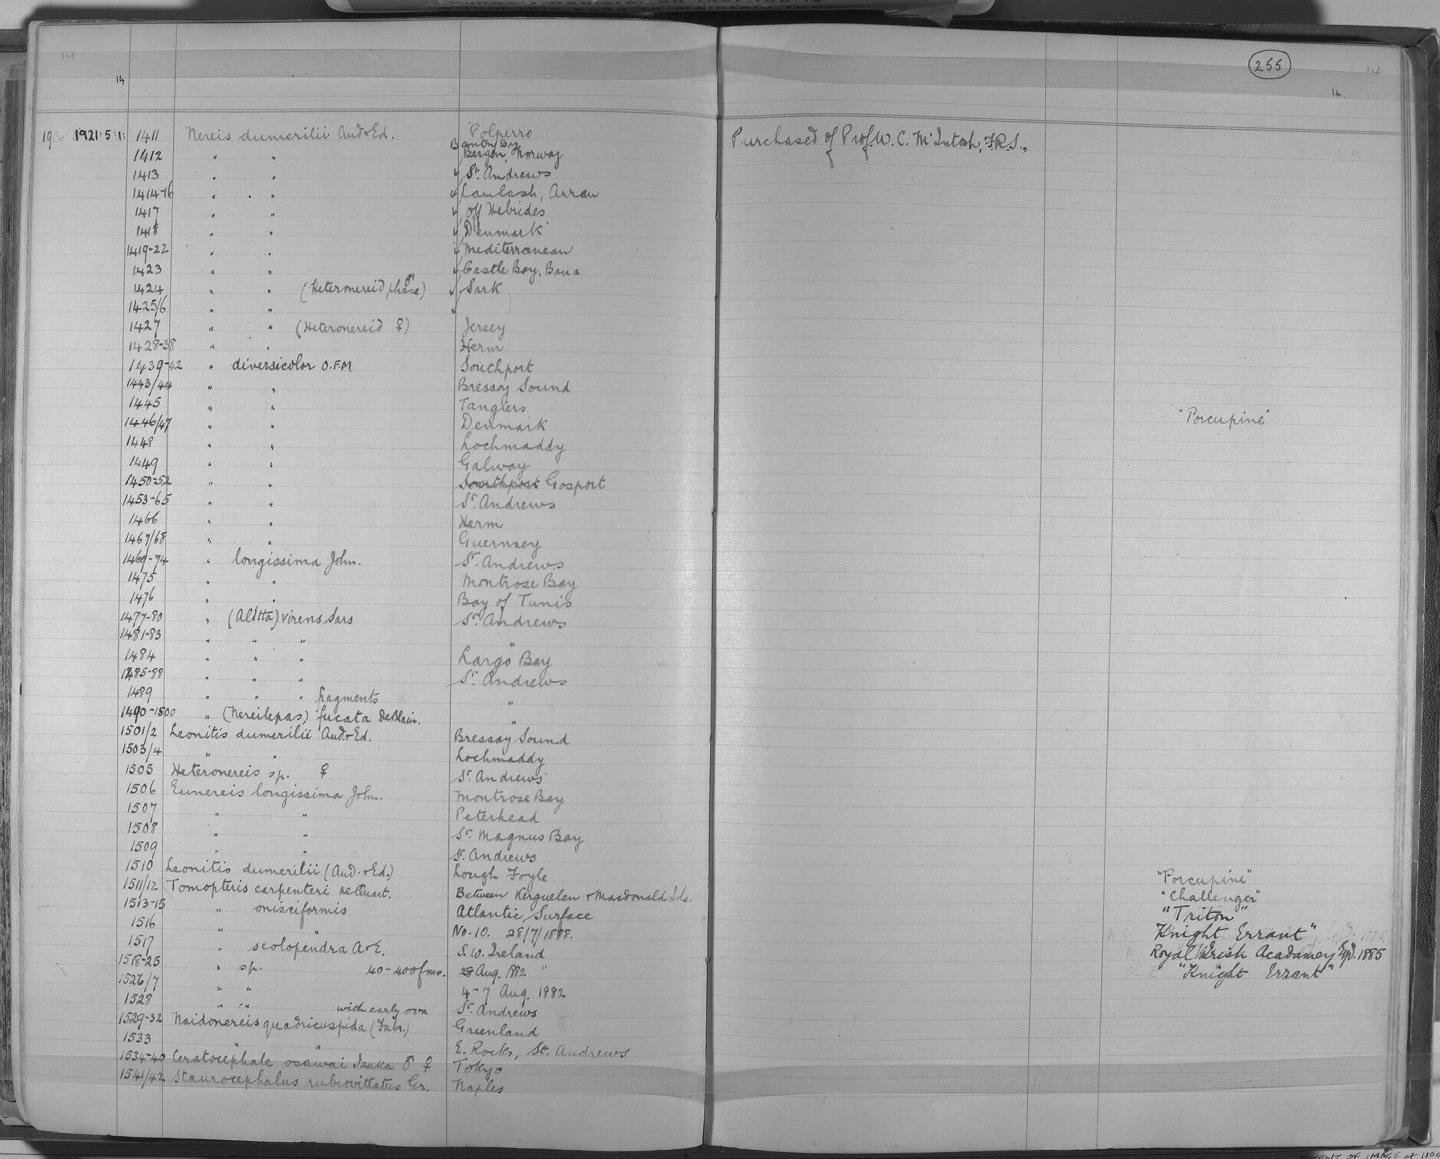 255
14
14
19 1921·5·1· 1411 Nereis dumerilii Aud&Ed. Polperro Purchased of Prof W. C. McIntosh, F.R.S.,
1412 " " Bergen, Norway
1413 " " St. Andrews
1414-16 " " Lamlash, Arran
1417 " " off Hebrides
1418 " " Denmark
1419-22 " " Mediterranean
1423 " " Castle Bay, Barra
1424 " " (Heteronereid phase) ♂ Sark
1425/6 " " "
1427 " " (Heteronereid ♀) Jersey
1428-38 " " Herm
1439-42 " diversicolor O.F.M Southport
1443/44 " " Bressay Sound
1445 " " Tangiers "Porcupine"
1446/47 " " Denmark
1448 " " Lochmaddy
1449 " " Galway
1450-52 " " Southport Gosport
1453-65 " " St. Andrews
1466 " " Herm
1467/68 " " Guernsey
1469-74 " longissima John. St. Andrews
1475 " " Montrose Bay
1476 " " Bay of Tunis
1477-80 " (Alitta) virens Sars St. Andrews
1481-83 " " " "
1484 " " " Largo Bay
1485-88 " " " St. Andrews
1489 " " " fragments "
1490-1500 " (Nereilepas) fucata DeBlain. "
1501/2 Leonitis dumerilii Aud.&Ed. Bressay Sound
1503/4 " " Lochmaddy
1505 Heteronereis sp. ♀ St. Andrews
1506 Eunereis longissima John. Montrose Bay
1507 " " Peterhead
1508 " " St. Magnus Bay
1509 " " St. Andrews
1510 Leonitis dumerilii (Aud.&Ed.) Lough Foyle "Porcupine"
1511/12 Tomopteris carpenteri deQuat. Between Kerguelen & Macdonald Isls. "Challenger"
1513-15 " onisciformis Atlantic, Surface "Triton"
1516 " " No. 10. 28/7/1888. Knight Errant"
1517 " scolopendra A&E. S.W. Ireland Royal Irish Acadamey Expd. 1885
1518-25 " sp. 40-400fms. 28 Aug. 1882 " "Knight Errant"
1526/7 " " 4-7 Aug. 1882
1528 " " with early ova St. Andrews
1529-32 Naidonereis quadricuspida (Fabr.) Greenland
1533 " " E. Rocks, St. Andrews
1534-40 Ceratocephale osawai Izuka ♂ ♀ Tokyo
1541/42 Staurocephalus rubrovittatus Gr. Naples